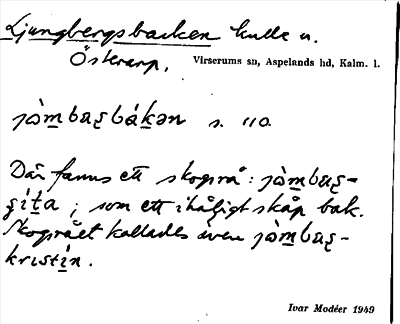 Ljungbergsbacken kulle u.
Österarp, Virserums sn, Aspelands hd, Kalm. l.
jòmbærsbákən s. 110.
Där fanns ett skogsrå: jòmbærs-
gíta, som ett ihåligt skåp bak.
Skogsrået kallades även jòmbærs-
kristín.
Ivar Modéer 1949